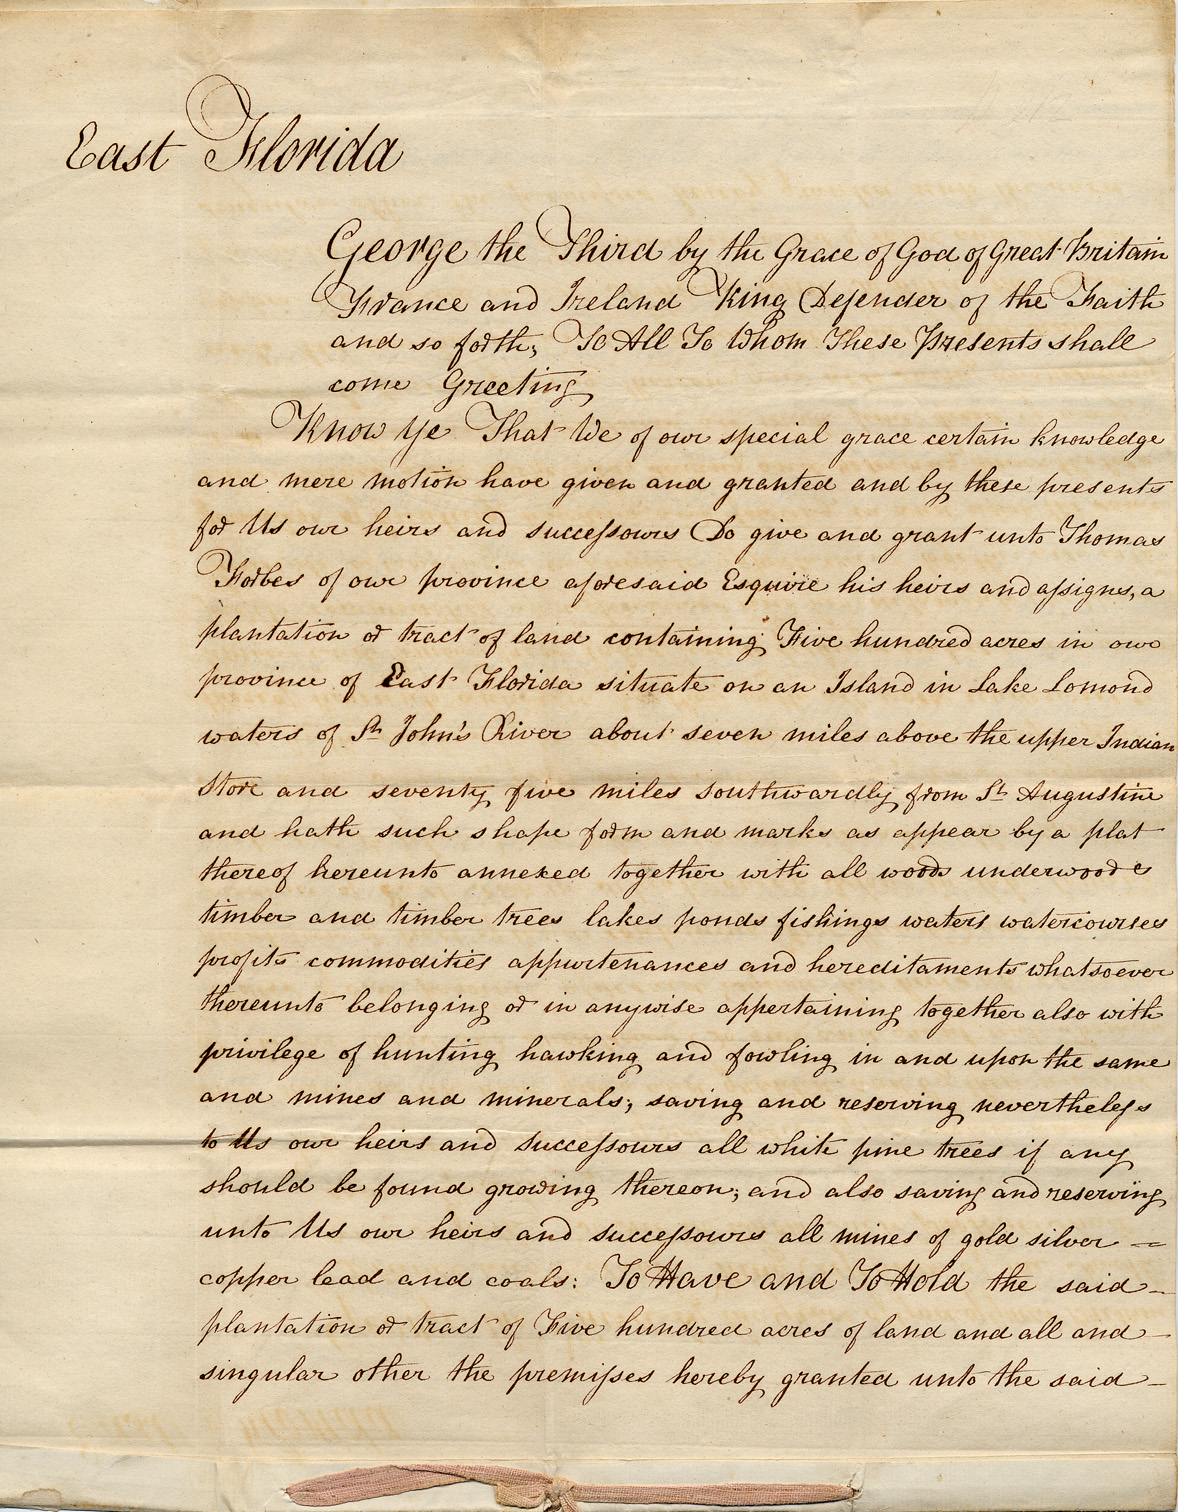 East Florida
George the Third by the Grace of God of Great Britain
France and Ireland King Defender of the Faith
and so forth, To All To Whom These Presents shall
come Greeting
Know Ye That We of our special grace certain knowledge
and mere motion have given and granted and by these presents
for Us our heirs and successours Do give and grant unto Thomas
Forbes of our province aforesaid Esquire his heirs and assigns, a
plantation or tract of land containing Five hundred acres in our
province of East Florida situate on an Island in Lake Lomond
waters of St. John's River about seven miles above the upper Indian
Store and seventy five miles southwardly from St. Augustine
and hath such shape form and marks as appear by a plat
thereof hereunto annexed together with all woods underwoods
timber and timber trees lakes ponds fishings waters watercourses
profits commodities appurtenances and hereditaments whatsoever
thereunto belonging or in anywise appertaining together also with
privilege of hunting hawking and fowling in and upon the same
and mines and minerals; saving and reserving nevertheless
to Us our heirs and successours all white pine trees if any
should be found growing thereon; and also saving and reserving
unto Us our heirs and successours all mines of gold silver =
copper lead and coals: To Have and To Hold the said –
plantation or tract of Five hundred acres of land and all and –
singular other the premisses hereby granted unto the said –